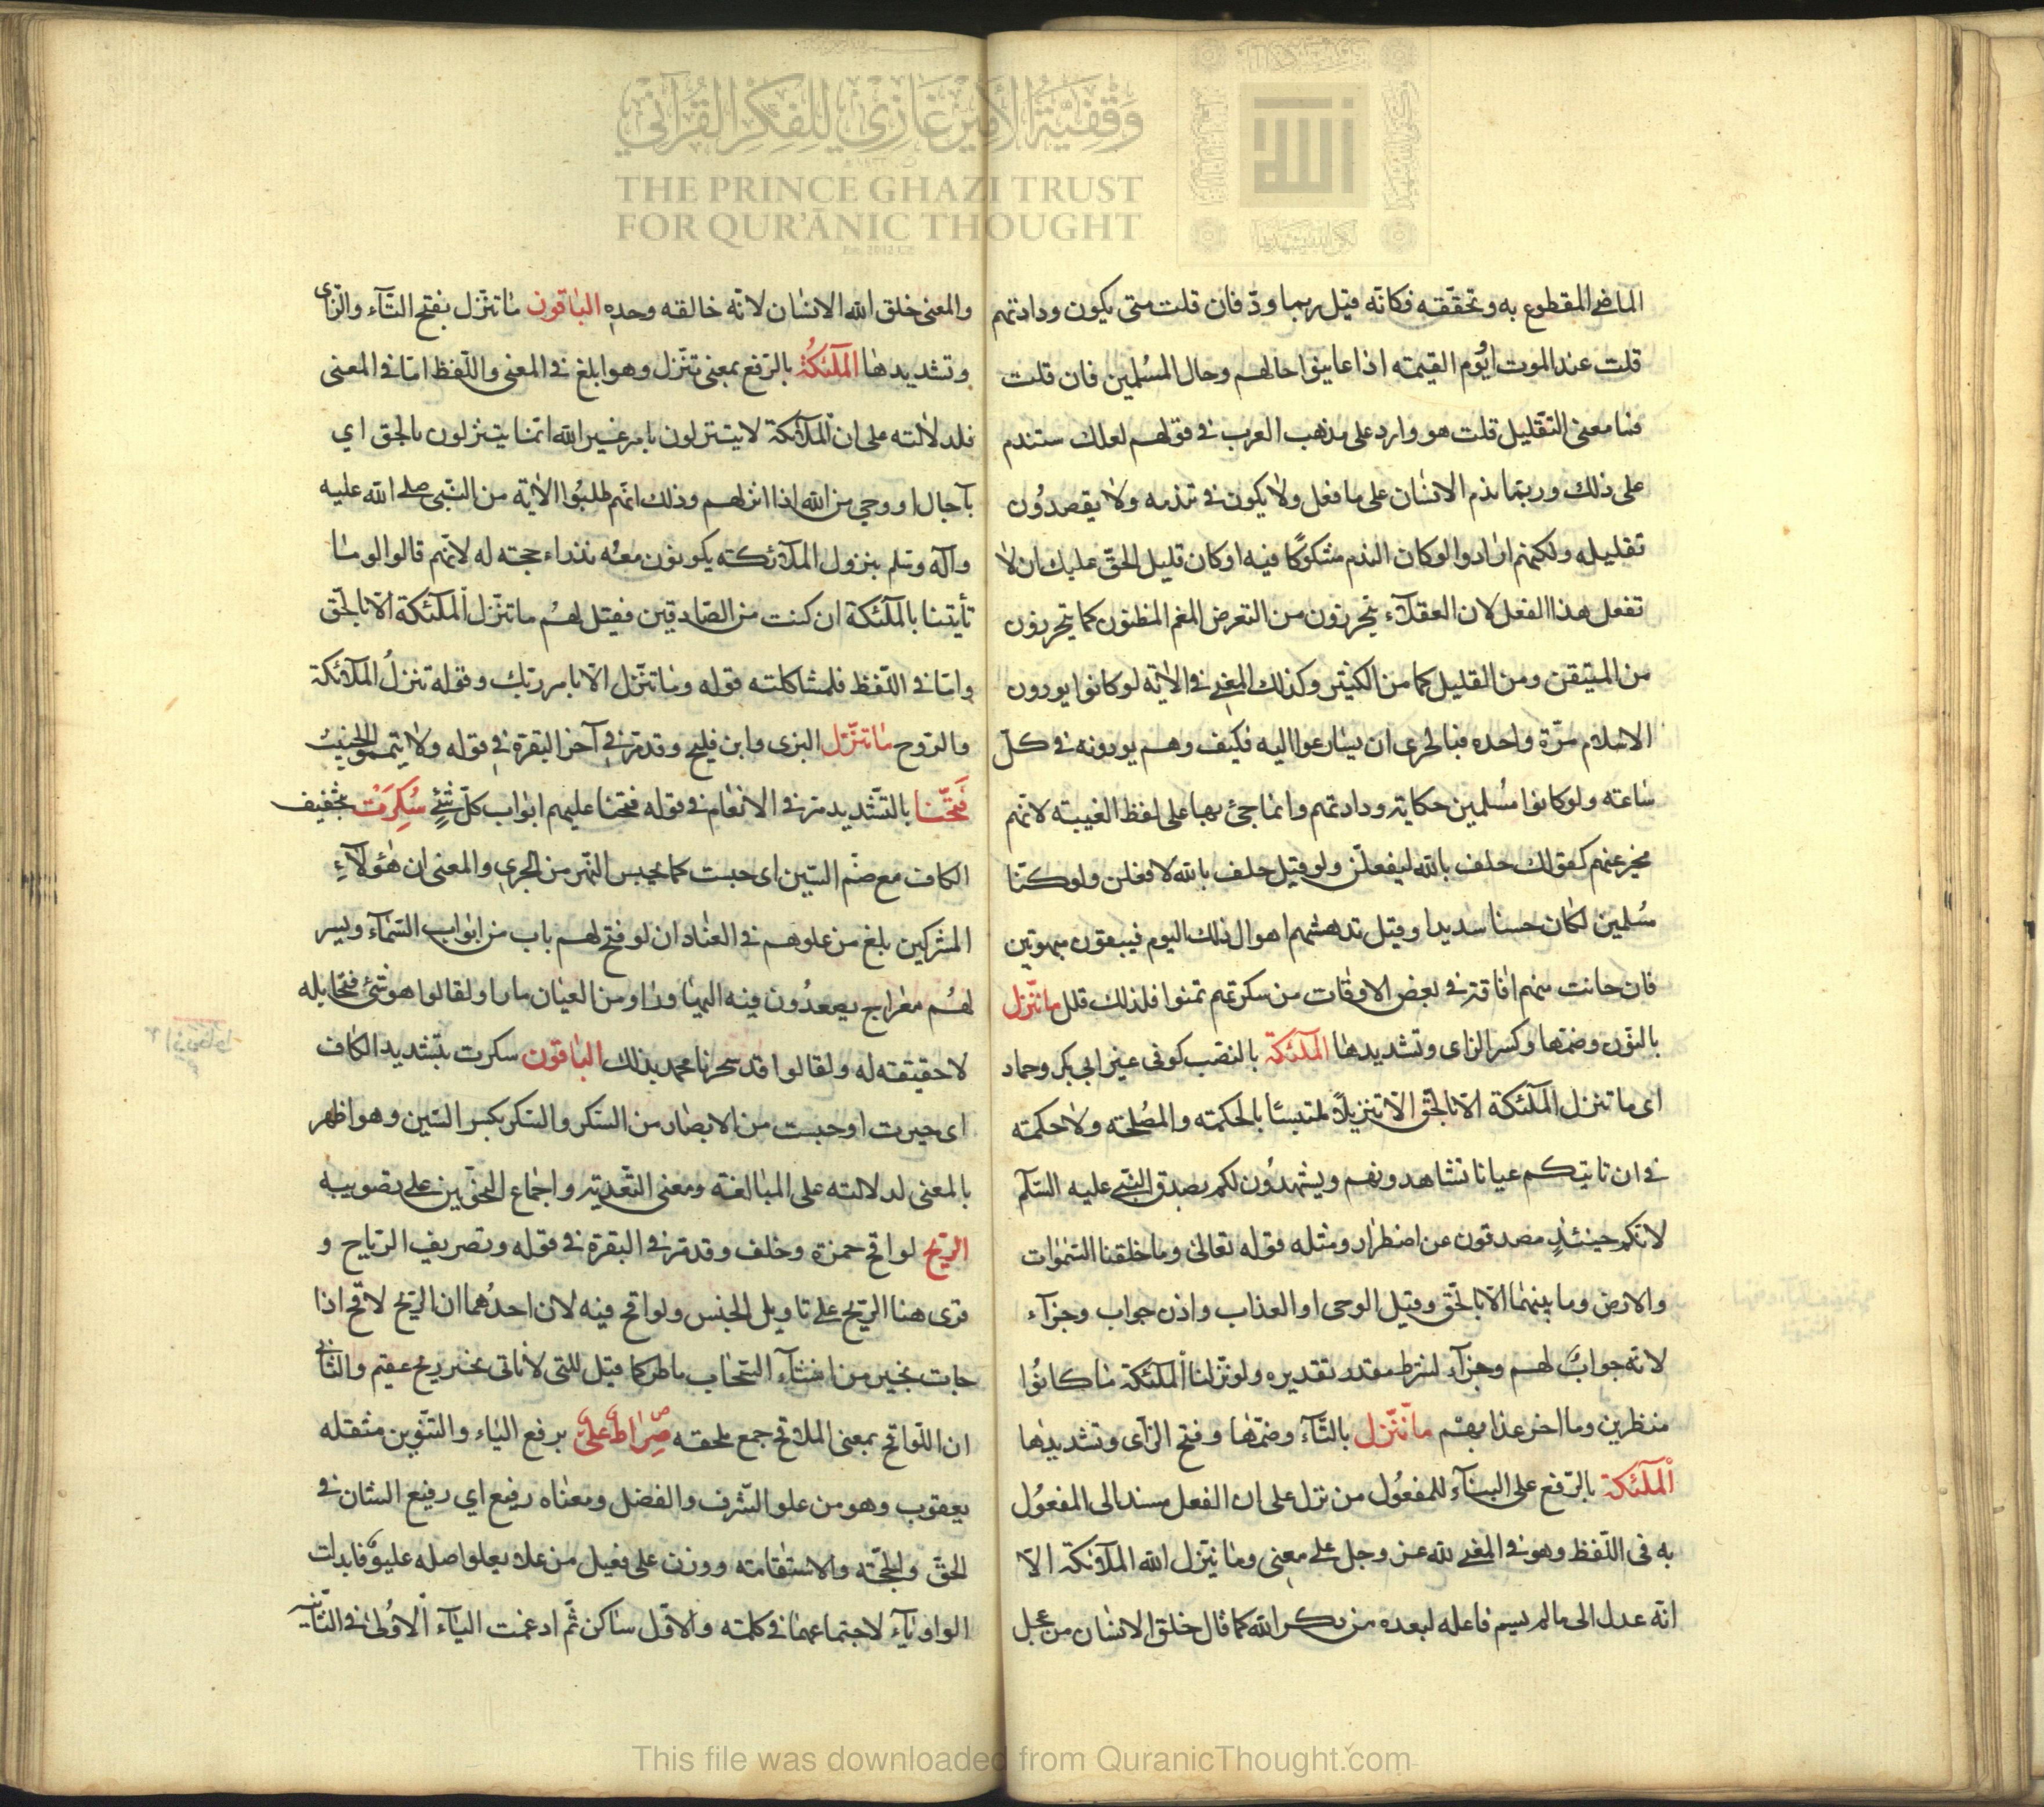 وقفية الأمير غازي للفكر القرآني
THE PRINCE GHAZI TRUST
FOR QUR'ĀNIC THOUGHT
الماضي المقطوع به وتحققه فكانه قيل ربما ودّ فان قلت متى يكون ودادتهم
قلت عند الموت او يوم القيمة اذا عاينوا حالهم وحال المسلمين فان قلت
فما معنى التقليل قلت هو وارد على مذهب العرب في قولهم لعلك ستندم
على ذلك وربما ندم الانسان على ما فعل ولا يكون في تندمه ولا يقصدون
تقليله ولكنهم ارادوا لو كان الندم مشكوكا فيه او كان قليل الحق عليك ان لا
تفعل هذا الفعل لان العقلاء يتحرزون من التعرض المغم المظنون كما يتحرزون
من المتيقن ومن القليل كما من الكثير وكذلك المعنى في الاية لو كانوا يودون
الاسلام مرّة واحده فبالحرى ان يسارعوا اليه فكيف وهم يودونه في كل
ساعته ولو كانوا مسلمين حكاية ودادتهم وانما جئ بها على لفظ الغيبة لانهم
مخبر عنهم كقولك حلف بالله ليفعلنّ ولو قيل حلف بالله لافعلن ولو كنّا
مسلمين لكان حسنا سديدا وقيل تدهشهم اهوال ذلك اليوم فيبقون مبهوتين
فان حانت منهم افاقة في بعض الاوقات من سكرتهم تمنوا فلذلك قلل ما ننزل
بالنون وضمها وكسر الزاى وتشديدها الملئكة بالنصب كوفى غير ابى بكر وحماد
اى ما ننزل الملئكة الا بالحق الا تنزيلا ملتبسا بالحكمته والمصلحته ولا حكمته
في ان تاتيكم عيانا تشاهدونهم ويشهدون لكم بصدق النبي عليه السلم
لانكم حينئذ مصدقون عن اضطرار ومثله قوله تعالى وما خلقنا السموات
والارض وما بينهما الا بالحق وقيل الوحى او العذاب واذن جواب وجزآء
لانه جواب لهم وجزآء لشرط مقدر تقديره ولو نزلنا الملئكة ما كانوا
منظرين وما اخر عذابهم ما تنزل بالتآء وضمها وفتح الزاى وتشديدها
الملئكة بالرفع على البنآء للمفعول من نزل على ان الفعل مسند الى المفعول
به فى اللفظ وهو في المعنى لله عز وجل على معنى وما ينزل الله الملائكة الا
انه عدل الى ما لم يسم فاعله لبعده من ذكر الله كما قال خلق الانسان من عجل
والمعنى خلق الله الانسان لانه خالقه وحده الباقون ما تنزل بفتح التآء والزاى
وتشديدها الملئكة بالرفع بمعنى تتنزل وهو ابلغ في المعنى واللفظ امّا في المعنى
فلدلالته على ان الملائكة لا يتنزلون بامر غير الله انما يتنزلون بالحق اي
بآجال او وحي من الله اذا انزلهم وذلك انهم طلبوا الاية من النبي صلى الله عليه
وآله وسلم بنزول الملائكته يكونون معه نذراء حجته له لانهم قالوا لو ما
تأتينا بالملئكة ان كنت من الصادقين فقيل لهم ما تنزل الملئكة الا بالحق
وامّا في اللفظ فلمشاكلته قوله وما نتنزل الا بامر ربك وقوله تنزل الملائكة
والروح ما تنزل البزى وابن فليح وقد مر في آخر البقرة في قوله ولا تيمموا الخبيث
فتحنا بالتشديد مر في الانعام في قوله فتحنا عليهم ابواب كل شئ سكرت بتخفيف
الكاف مع ضم السين اى حبست كما يحبس النهر من الجري والمعنى ان هؤلآء
المشركين بلغ من علوهم في العناد ان لو فتح لهم باب من ابواب السمآء ويسر
لهم معراج يصعدون فيه اليها وراوا من العيان ما راوا لقالوا هو شئ
لا حقيقته له ولقالوا قد سحرنا محمد بذلك الباقون سكرت بتشديد الكاف
اى حيرت او حبست من الابصار من السكر والسكر بكسر السين وهو اظهر
بالمعنى لدلالته على المبالغة ومعنى التعدية واجماع النحويين على تصويبه
الريح لواقح حمزة وخلف وقد مر في البقرة في قوله وتصريف الرياح و
قرى هنا الريح على تاويل الجنس ولواقح فيه لان احدهما ان الريح لاقح اذا
جات بخير من انشآء السحاب ماطر كما قيل للتى لا تاتى بخير ريح عقيم والثاني
ان اللواقح بمعنى الملاقح جمع ملحقه صراط علي برفع الياء والتنوين مثقله
يعقوب وهو من علو الشرف والفضل ومعناه رفيع اي رفيع الشان في
الحق والحجّته والاستقامته ووزن على فعيل من علا يعلو اصله عليو فابدلت
الواو يآء لاجتماعهما في كلمته والاول ساكن ثم ادغمت اليآء الاولى في الثانية
This file was downloaded from QuranicThought.com